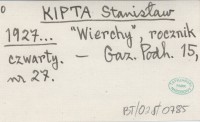 KIPTA Stanisław
1927... "Wierchy", rocznik
czwarty. — Gaz. Podh. 15,
nr 27.